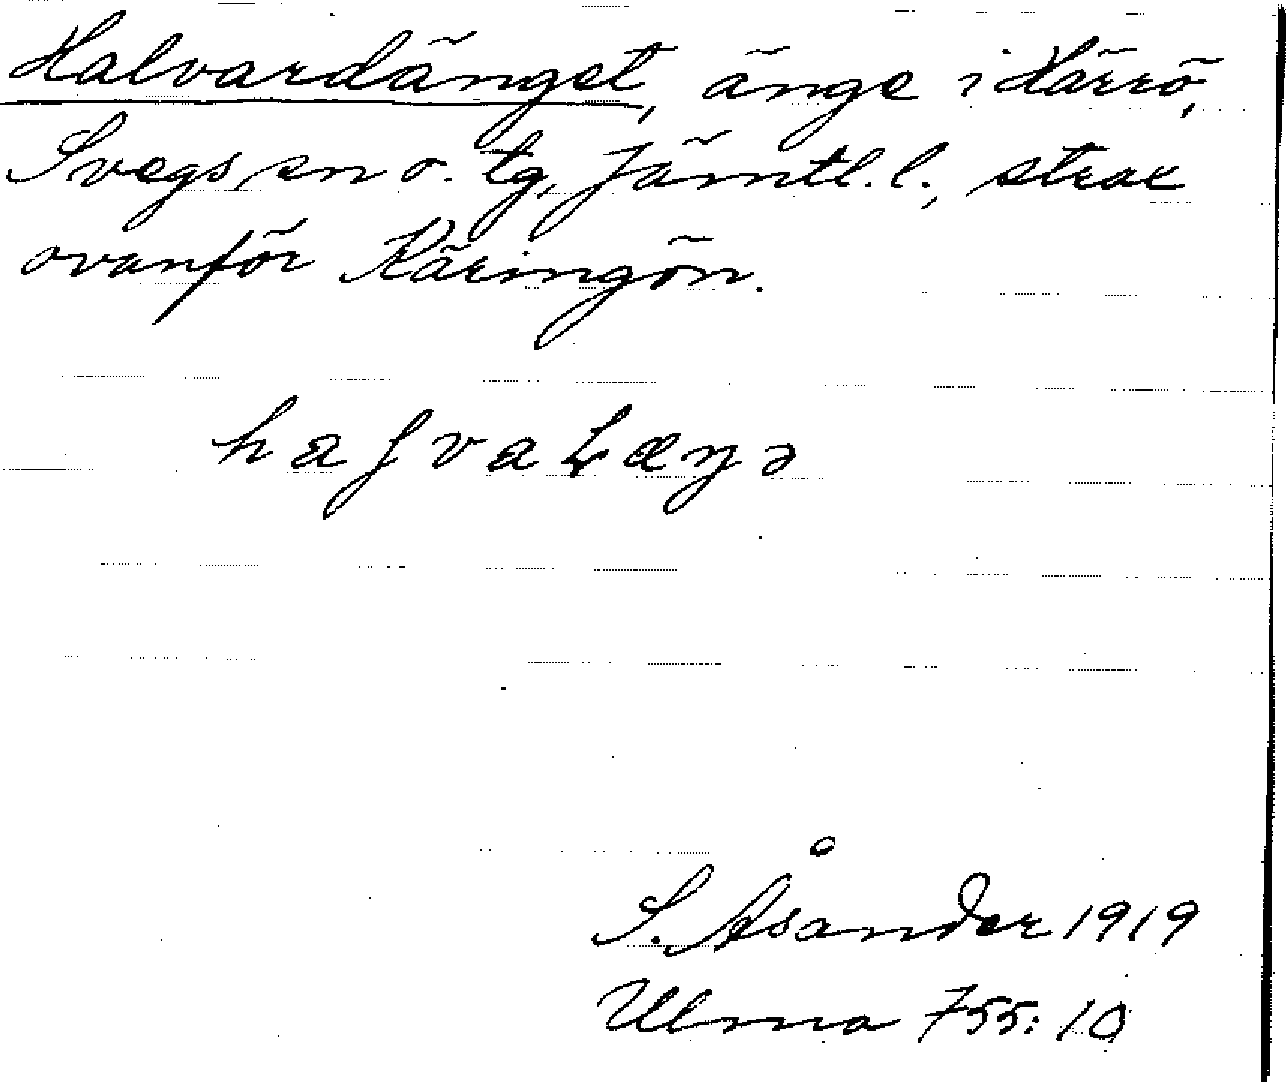 Halvardänget, änge i Härrö,
Svegs sn o. tg, Jämtl. l., strax
ovanför Käringön.
S. Åsander 1919
Ulma 755:10